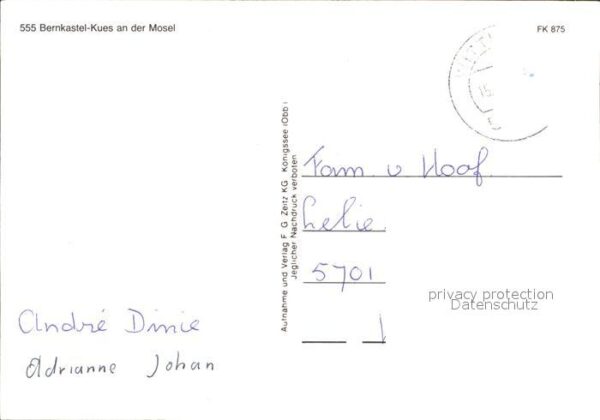 555 Bernkastel-Kues an der Mosel
FK 875
Aufnahme und Verlag F. G. Zeitz KG Königssee (Obb)
Jeglicher Nachdruck verboten
Fam v Hoof
5701
privacy protection
Datenschutz
André Dinie
Adrianne Johan